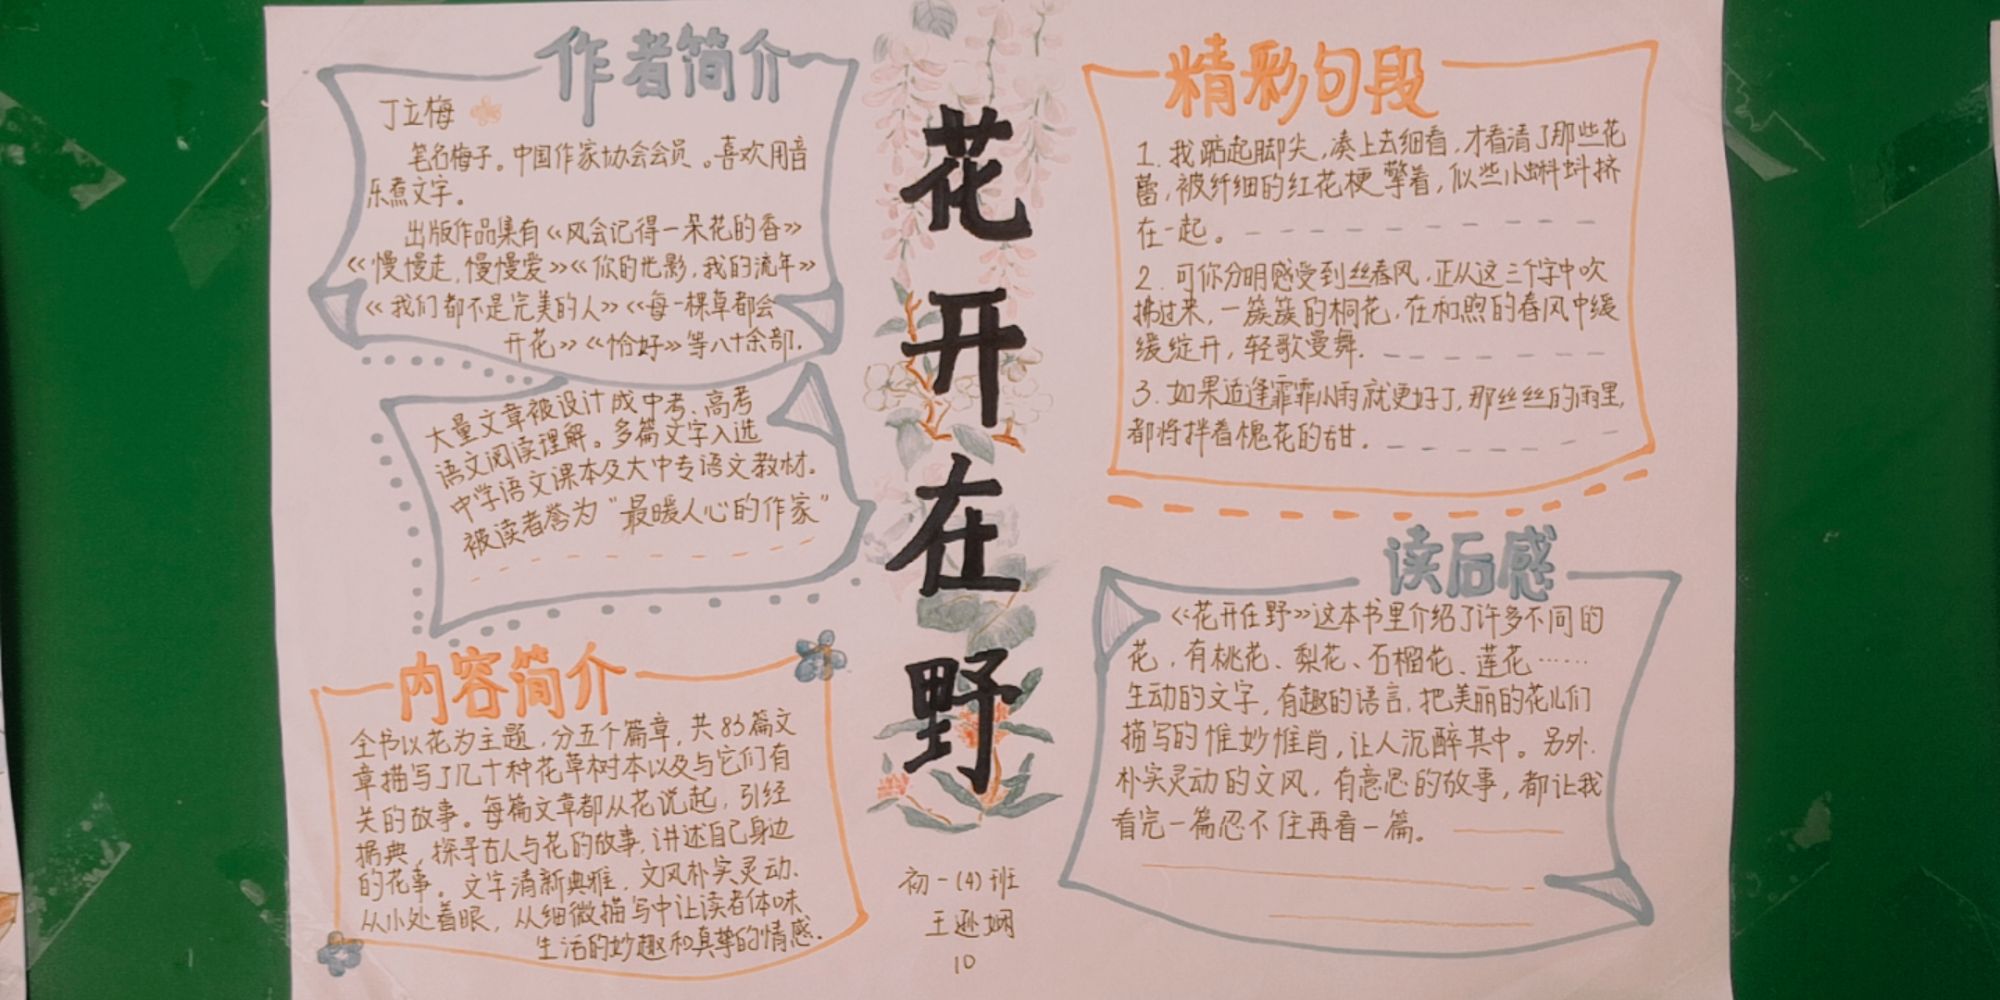 作者简介
丁立梅
笔名梅子。中国作家协会会员。喜欢用音
乐煮文字。
出版作品集有《风会记得一朵花的香》
《慢慢走,慢慢爱》《你的光影,我的流年》
《我们都不是完美的人》《每一棵草都会
开花》《恰好》等八十余部.
大量文章被设计成中考、高考
语文阅读理解。多篇文字入选
中学语文课本及大中专语文教材.
被读者誉为“最暖人心的作家”
内容简介
全书以花为主题,分五个篇章,共83篇文
章描写了几十种花草树木以及与它们有
关的故事。每篇文章都从花说起,引经
据典,探寻古人与花的故事,讲述自己身边
的花事。文字清新典雅,文风朴实灵动、
从小处着眼,从细微描写中让读者体味
生活的妙趣和真挚的情感.
花
开
在
野
初一(4)班
王逊娴
10
精彩句段
1.我踮起脚尖,凑上去细看,才看清了那些花
蕾,被纤细的红花梗擎着,似些小蝌蚪挤
在一起。
2.可你分明感受到丝春风,正从这三个字中吹
拂过来,一簇簇的桐花,在和煦的春风中缓
缓绽开,轻歌曼舞.
3.如果适逢霏霏小雨就更好了,那丝丝的雨里,
都将拌着槐花的甜.
读后感
《花开在野》这本书里介绍了许多不同的
花,有桃花、梨花、石榴花、莲花……
生动的文字,有趣的语言,把美丽的花儿们
描写的惟妙惟肖,让人沉醉其中。另外,
朴实灵动的文风,有意思的故事,都让我
看完一篇忍不住再看一篇。